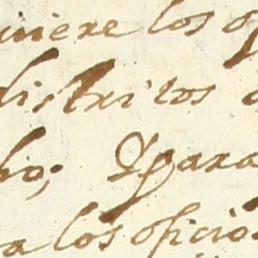 iniere los o
distritos
ho; Y para
a los oficio